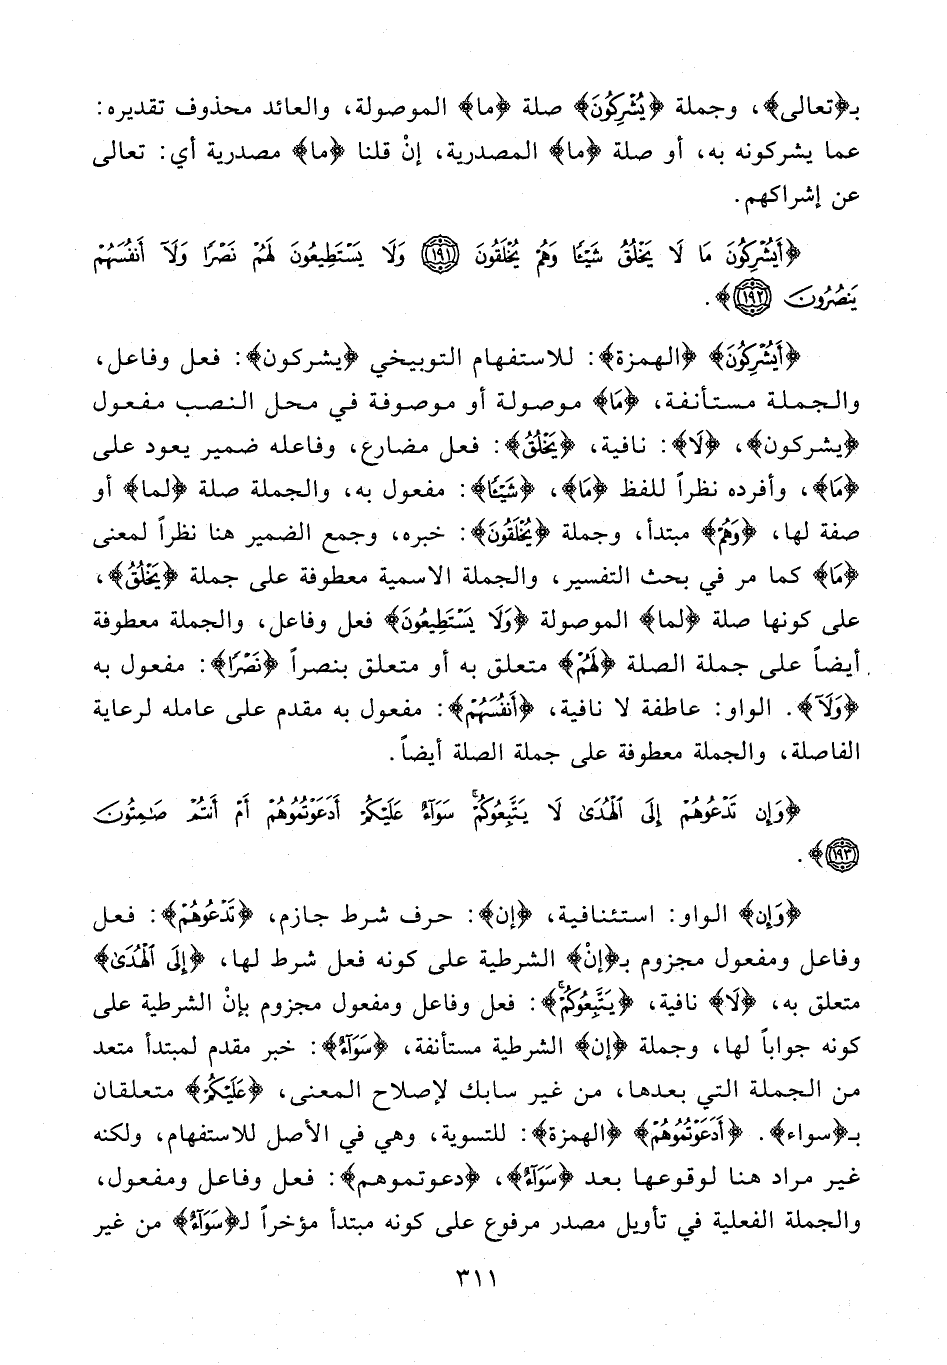 بـ﴿تعالى﴾، وجملة ﴿يُشْرِكُونَ﴾ صلة ﴿ما﴾ الموصولة، والعائد محذوف تقديره:
عما يشركونه به، أو صلة ﴿ما﴾ المصدرية، إنْ قلنا ﴿ما﴾ مصدرية أي: تعالى
عن إشراكهم.
﴿أَيُشْرِكُونَ مَا لَا يَخْلُقُ شَيْئًا وَهُمْ يُخْلَقُونَ ﴿١٩١﴾ وَلَا يَسْتَطِيعُونَ لَهُمْ نَصْرًا وَلَآ أَنفُسَهُمْ
يَنصُرُونَ ﴿١٩٢﴾﴾.
﴿أَيُشْرِكُونَ﴾ ﴿الهمزة﴾: للاستفهام التوبيخي ﴿يشركون﴾: فعل وفاعل،
والجملة مستأنفة، ﴿مَا﴾ موصولة أو موصوفة في محل النصب مفعول
﴿يشركون﴾، ﴿لَا﴾: نافية، ﴿يَخْلُقُ﴾: فعل مضارع، وفاعله ضمير يعود على
﴿مَا﴾، وأفرده نظراً للفظ ﴿مَا﴾، ﴿شَيْئًا﴾: مفعول به، والجملة صلة ﴿لما﴾ أو
صفة لها، ﴿وَهُمْ﴾ مبتدأ، وجملة ﴿يُخْلَقُونَ﴾: خبره، وجمع الضمير هنا نظراً لمعنى
﴿مَا﴾ كما مر في بحث التفسير، والجملة الاسمية معطوفة على جملة ﴿يَخْلُقُ﴾،
على كونها صلة ﴿لما﴾ الموصولة ﴿وَلَا يَسْتَطِيعُونَ﴾ فعل وفاعل، والجملة معطوفة
أيضاً على جملة الصلة ﴿لَهُمْ﴾ متعلق به أو متعلق بنصراً ﴿نَصْرًا﴾: مفعول به
﴿وَلَآ﴾. الواو: عاطفة لا نافية، ﴿أَنفُسَهُمْ﴾: مفعول به مقدم على عامله لرعاية
الفاصلة، والجملة معطوفة على جملة الصلة أيضاً.
﴿وَإِن تَدْعُوهُمْ إِلَى ٱلْهُدَىٰ لَا يَتَّبِعُوكُمْ ۚ سَوَآءٌ عَلَيْكُمْ أَدَعَوْتُمُوهُمْ أَمْ أَنتُمْ صَٰمِتُونَ
﴿١٩٣﴾﴾.
﴿وَإِن﴾ الواو: استئنافية، ﴿إن﴾: حرف شرط جازم، ﴿تَدْعُوهُمْ﴾: فعل
وفاعل ومفعول مجزوم بـ﴿إنْ﴾ الشرطية على كونه فعل شرط لها، ﴿إِلَى ٱلْهُدَىٰ﴾
متعلق به، ﴿لَا﴾ نافية، ﴿يَتَّبِعُوكُمْ ۚ﴾: فعل وفاعل ومفعول مجزوم بإنْ الشرطية على
كونه جواباً لها، وجملة ﴿إن﴾ الشرطية مستأنفة، ﴿سَوَآءٌ﴾: خبر مقدم لمبتدأ متعد
من الجملة التي بعدها، من غير سابك لإصلاح المعنى، ﴿عَلَيْكُمْ﴾ متعلقان
بـ﴿سواء﴾. ﴿أَدَعَوْتُمُوهُمْ﴾ ﴿الهمزة﴾: للتسوية، وهي في الأصل للاستفهام، ولكنه
غير مراد هنا لوقوعها بعد ﴿سَوَآءٌ﴾، ﴿دعوتموهم﴾: فعل وفاعل ومفعول،
والجملة الفعلية في تأويل مصدر مرفوع على كونه مبتدأ مؤخراً لـ﴿سَوَآءٌ﴾ من غير
٣١١